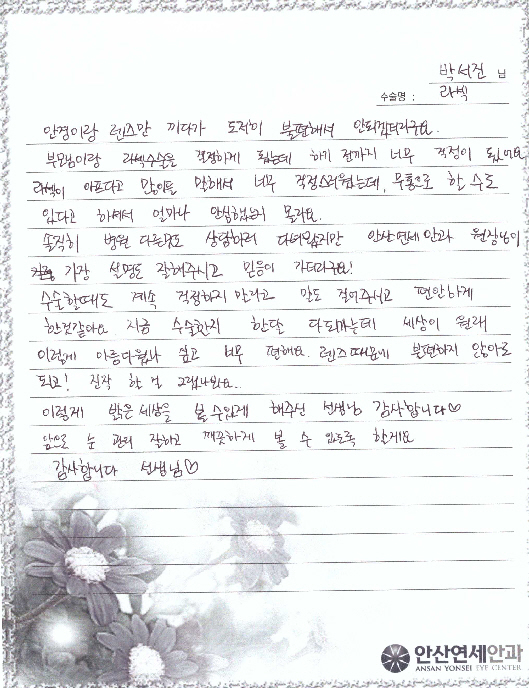 박서진 님
수술명 : 라섹
안경이랑 렌즈만 끼다가 도저히 불편해서 안되겠더라구요.
부모님이랑 라섹수술을 결정하게 됐는데 하기 전까지 너무 걱정이 됐어요
라섹이 아프다고 많이들 말해서 너무 걱정스러웠는데, 무통으로 할 수도
있다고 하셔서 얼마나 안심했는지 몰라요.
솔직히 병원 다른곳도 상담하러 다녀왔지만 안산연세안과 원장님이
가장 설명도 잘해주시고 믿음이 가더라구요!
수술할때도 계속 걱정하지 말라고 말도 걸어주시고 편안하게
한것같아요. 지금 수술한지 한달 다되가는데 세상이 원래
이렇게 아름다웠나 싶고 너무 편해요. 렌즈때문에 불편하지 않아도
되고! 진작 할 걸 그랬나봐요..
이렇게 밝은세상을 볼 수있게 해주신 선생님 감사합니다♡
앞으로 눈 관리 잘하고 깨끗하게 볼 수 있도록 할게요
감사합니다 선생님♡
안산연세안과
ANSAN YONSEI EYE CENTER